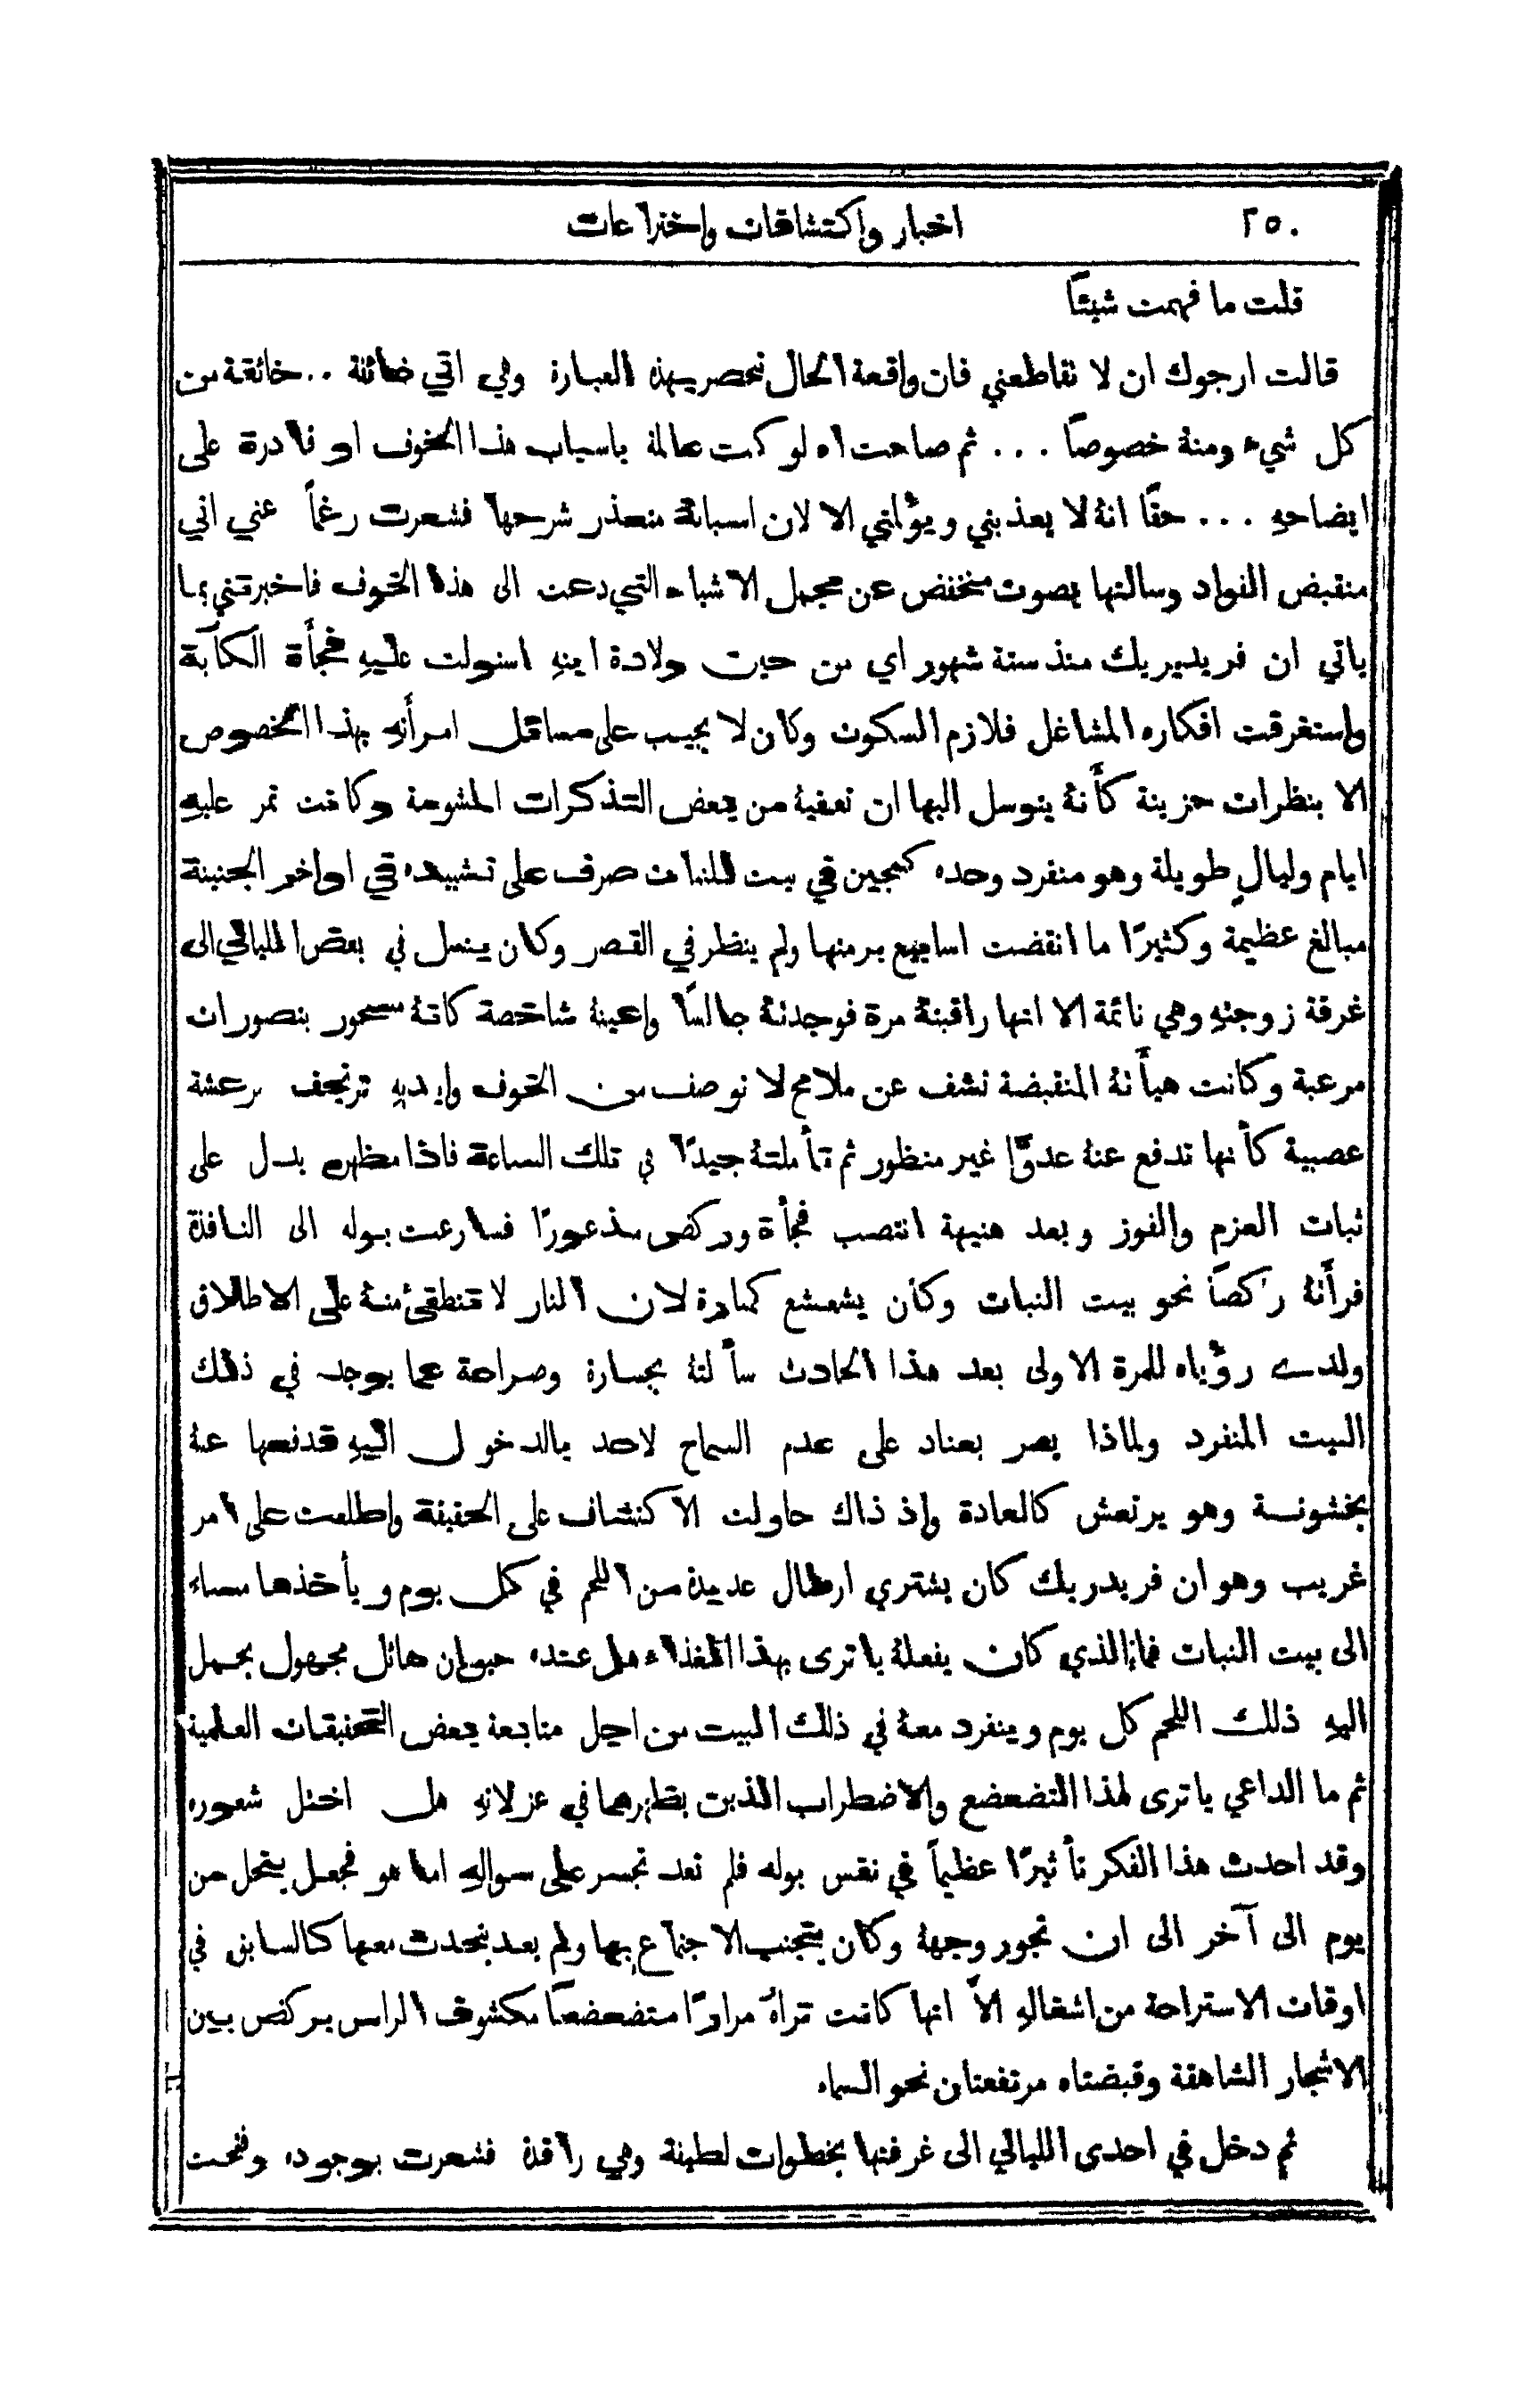 ٢٥٠
اخبار واكتشافات واختراعات
قلت ما فهمت شيئًا
قالت ارجوك ان لا تقاطعني فان واقعة الحال تنحصر بهذه العبارة وهي اني خائفة .. خائفة من
كل شيء ومنهُ خصوصًا ... ثم صاحت اه لو كنت عالمة باسباب هذا الخوف او قادرة على
ايضاحهِ ... حقًا انهُ لا يعذبني ويؤلمني الا لان اسبابهُ متعذر شرحها فشعرت رغمًا عني اني
منقبض الفواد وسالتها بصوت منخفض عن مجمل الاشياء التي دعت الى هذا الخوف فاخبرتني بما
ياتي ان فريديريك منذ ستة شهور اي من حين ولادة ابنهِ استولت عليهِ فجأة الكآبة
واستغرقت افكاره المشاغل فلازم السكوت وكان لا يجيب على مسائل امرأتهِ بهذا الخصوص
الا بنظرات حزينة كأنهُ يتوسل اليها ان تعفيهُ من بعض التذكرات المشومة وكانت تمر عليهِ
ايام وليالٍ طويلة وهو منفرد وحده كسجين في بيت للنبات صرف على تشييده في اواخر الجنينة
مبالغ عظيمة وكثيرًا ما انقضت اسابيع برمتها ولم ينظر في القصر وكان ينسل في بعض الليالي الى
غرفة زوجتهِ وهي نائمة الا انها راقبتهُ مرة فوجدتهُ جالسًا واعينهُ شاخصة كانهُ مسحور بتصورات
مرعبة وكانت هيأتهُ المنقبضة تشف عن ملامح لا توصف من الخوف وايديهِ ترتجف برعشة
عصبية كأنها تدفع عنهُ عدوًّا غير منظور ثم تأملتهُ جيدًا في تلك الساعة فاذا مظهره يدل على
ثبات العزم والفوز وبعد هنيهة انتصب فجأة وركض مذعورًا فسارعت بوله الى النافذة
فرأتهُ راكضًا نحو بيت النبات وكان يشعشع كمنارة لان النار لا تنطفئ منهُ على الاطلاق
ولدى رؤياه للمرة الاولى بعد هذا الحادث سألتهُ بجسارة وصراحة عما يوجد في ذلك
البيت المنفرد ولماذا يصر بعناد على عدم السماح لاحد بالدخول اليهِ فدفعها عنهُ
بخشونة وهو يرتعش كالعادة واذ ذاك حاولت الاكتشاف على الحقيقة واطلعت على امر
غريب وهو ان فريدريك كان يشتري ارطال عديدة من اللحم في كل يوم ويأخذها مساء
الى بيت النبات فما الذي كان يفعلهُ يا ترى بهذا الغذاء هل عنده حيوان هائل مجهول يحمل
اليهِ ذلك اللحم كل يوم وينفرد معهُ في ذلك البيت من اجل متابعة بعض التحقيقات العلمية
ثم ما الداعي يا ترى لهذا التضعضع والاضطراب اللذين يظهرهما في عزلاتهِ هل اختل شعوره
وقد احدث هذا الفكر تأثيرًا عظيمًا في نفس بوله فلم تعد تجسر على سوالهِ اما هو فجعل ينحل من
يوم الى آخر الى ان تجور وجههُ وكان يتجنب الاجتماع بها ولم يعد يتحدث معها كالسابق في
اوقات الاستراحة من اشغالهِ الاَّ انها كانت تراهُ مرارًا متضعضعًا مكشوف الراس يركض بين
الاشجار الشاهقة وقبضتاه مرتفعتان نحو السماء
ثم دخل في احدى الليالي الى غرفتها بخطوات لطيفة وهي راقدة فشعرت بوجوده وفتحت